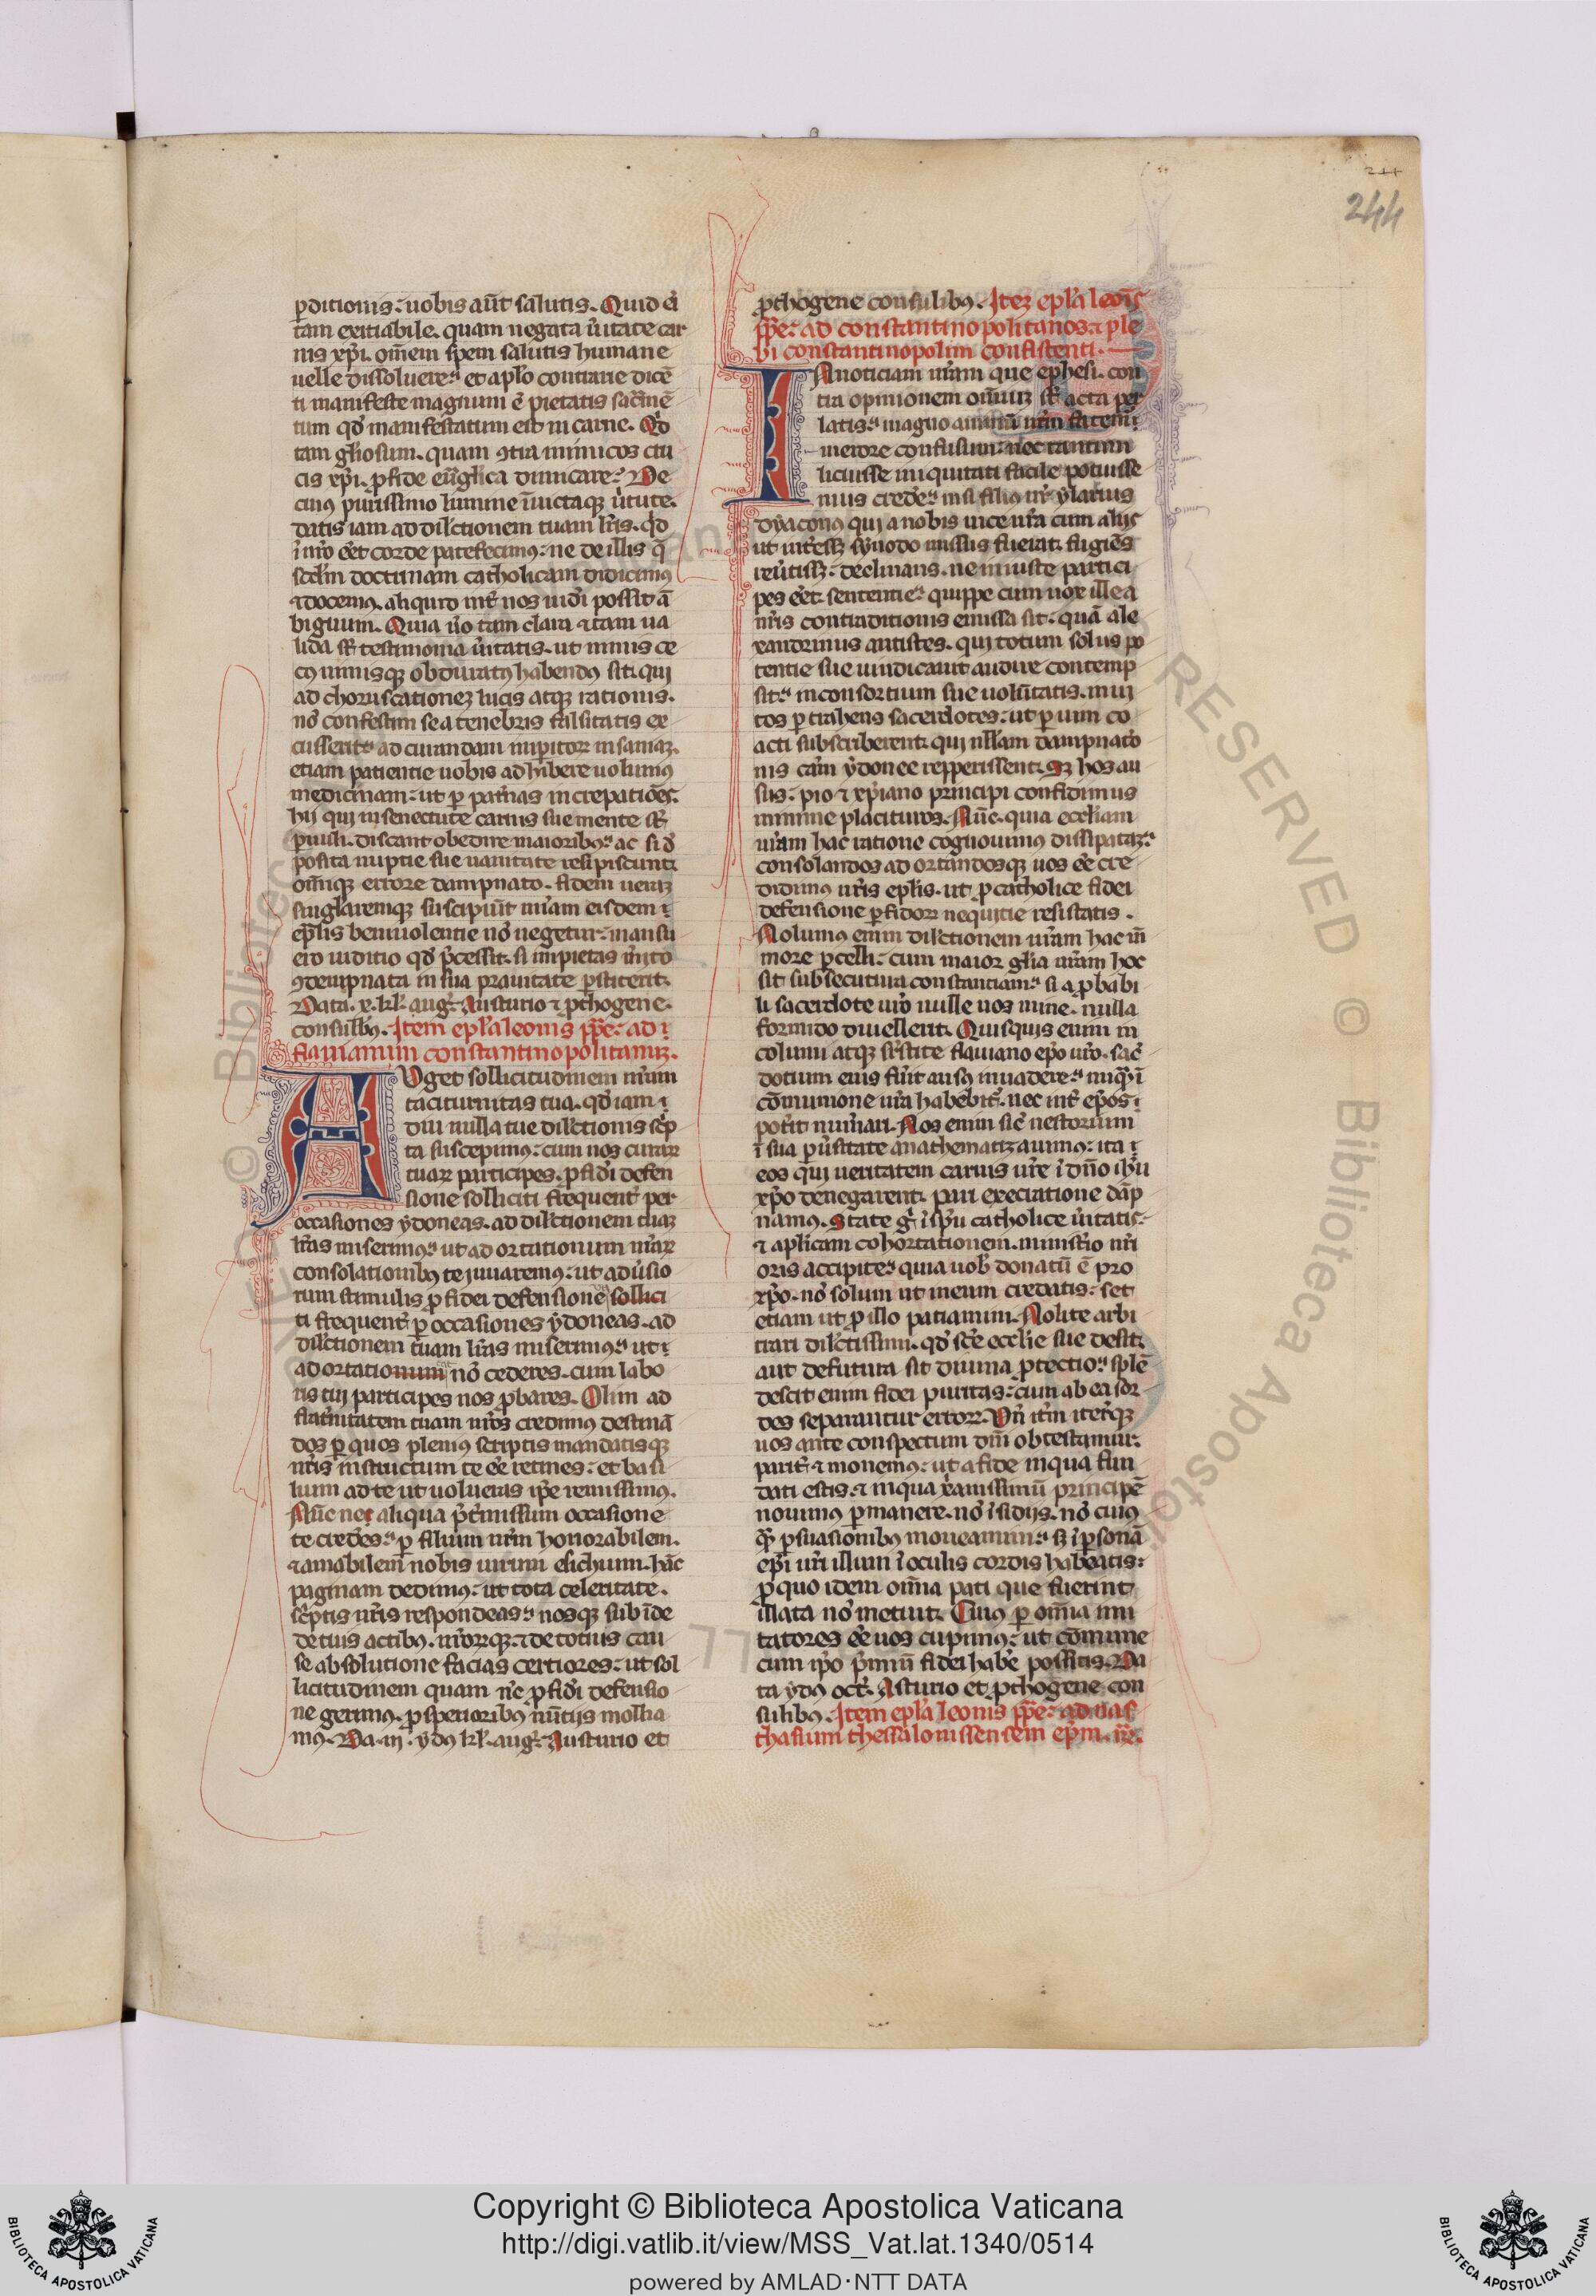 244
244
ꝑditionis. uobis aūt salutis. Quid ēi
tam exitiabile. quam negata ũitate car
nis xp̄i. om̄em spem salutis humane
uelle dissoluere. et aplo contrarie dicē
ti manifeste magnum ē pietatis sacͣmē
tum qđ manifestatum est in carne. Qđ
tam gl̄iosum. quam ꝯtra inimicos cru
cis xp̄i. ꝓ fide euͣglica dimicare. De
cuiꝰ purissimo lumine ī uictaqꝫ ũtute.
datis iam ad dilc̄tionem tuam lr̄is. qđ
ī nr̄o eēt corde patefecimꝰ. ne de illis q̄
scđm doctrinam catholicam didicimꝰ
⁊ docemꝰ. aliquid int̄ nos uidi possit ā
biguum. Quia ũo tam clara ⁊ tam ua
lida sͭ testimonia ũitatis. ut nimis ce
cꝰ nimisqꝫ obduratꝰ habendꝰ sit. qui
ad choruscationeꝫ lucis atqꝫ rationis.
nō confestim se a tenebris falsitatis ex
cusserit. ad curandam imꝑitoꝝ insaniaꝫ.
etiam patientie uobis adhibere uolumꝰ
medicinam. ut ꝑ pat̄nas increpatiōes.
hij qui in senectute carnis sue mente sͭ
ꝑuuli. discant obedire maioribꝰ. ac si đ
posita nuptie sue uanitate resipiscunt.
om̄iqꝫ errore dampnato. fidem ueraꝫ
singlaremqꝫ suscipiūt nr̄am eisdem ⁊
ep̄lis beniuolentie nō negetur. mansu
ero iuditio qđ p̄cessit. si impietas m̄ito
ꝯdempnata in sua prauitate ꝑstiterit.
Data. x. kl̄. aug. Austurio ⁊ ꝓthogene.
consulibꝰ. Item ep̄la leonis pp̄e. ad ⁊
flauianum constantinopolitanuꝫ.
AUget sollicitudinem nr̄am
taciturnitas tua. qđ iam ⁊
diu nulla tue dilc̄tionis sc̄p
ta suscepimꝰ. cum nos curaꝝ
tuaꝝ participes. ꝓ fidi defen
sione solliciti frequent̄ per
occasiones ydoneas. ad dilc̄tionem tuaꝫ
lr̄as misermꝰ. ut ad ortationum nr̄aꝝ
consolationibꝰ te iuuaremꝰ. ut aduͥsio
rum stimulis ꝓ fidei defensione sollici
ti frequent̄ ꝑ occasiones ydoneas. ad
dilc̄tionem tuam lr̄as misermꝰ. ut ⁊
ad ortationum nō cederes. cum labo
ris tui participes nos ꝓbares. Olim ad
frat̄nitatem tuam nr̄os credimꝰ destinā
dos ꝑ quos pleniꝰ scriptis mandatisqꝫ
nr̄is instructum te eē retines. et basi
lium ad te ut uolueras ip̄e remissimꝰ.
Nūc nec aliqua p̄t̄missum occasione
te credēs. ꝑ filium nr̄m honorabilem.
⁊ amabilem nobis uirum esichum. hāc
paginam dedimꝰ. ut tota celeritate.
sc̄ptis nr̄is respondeas. nosqꝫ sub īde
de tuis actibꝰ. nr̄oꝝqꝫ. ⁊ de totius cau
se absolutione facias certiores. ut sol
licitudinem quam nͨc ꝓ fidi defensio
ne gerimꝰ. ꝓsperioribꝰ nūtijs mollia
mꝰ. Da. iij. ydꝰ kl̄. aug. Austurio et
ꝓthogene consulibꝰ. Iteꝫ ep̄la leoīs
pp̄e. ad constantinopolitanos. ⁊ ple
bi constantinopolim consistenti.
INnoticiam nr̄am que ephesi. con
tra opinionem om̄iuꝫ sͭ acta per
latis. magno animū nr̄m fatemͬ
merore confusum. nec tantum
licuisse iniquitati facile potuisse
mus credeͤ. nisi filiꝰ nr̄ ylarius
dyaconꝰ qui a nobis uice nr̄a cum alijs
ut int̄esseꝫ synodo missus fuerat. fugiēs
reũtisseꝫ. declinans. ne iniuste partici
pes eēt sententie. quippe cum uox illea
nr̄is contraditionis emissa sit. quā ale
xandrinus antistes. qui totum solus po
tentie sue uindicauit audire contemp
sit. inconsortium sue uolūtatis. inui
tos ꝑtrahens sacerdotes. ut ꝑ uim co
acti subscriberent. qui nll̄am dampnatō
nis cām ydonee repperissent. Sꝫ hos au
sus. pio ⁊ xp̄iano principi confidimus
minime placituros. Nūc. quia ecclīam
nr̄am hac ratione cognouimꝰ dissipataꝫ.
consolandos ad ortandosqꝫ uos eē cre
didimꝰ nr̄is eplis. ut ꝓ catholice fidei
defensione ꝑfidoꝝ nequitie resistatis.
Nolumꝰ enim dilc̄tionem nr̄am hac in
more ꝑcelli. cum maior gl̄ia nr̄am hec
sit subsecutura constantiam. si a ꝓbabi
li sacerdote nr̄o nulle uos mine. nulla
formido diuellerit. Quisquis enim in
columi atqꝫ sr̄stite flauiano epō nr̄o. sac̄
dotium eius fũit ausꝰ inuadere. nuqͣ ī
cōmunione nr̄a habebit͛. nec int̄ epōs
potit̄ nũmari. Nos enim sic̄ nestorium
ī sua puͥsitate anathematizauimꝰ. ita ⁊
eos qui ueritatem carnis nr̄e ī dn̄o ihū
xp̄o denegarent. pari execratione dāp
namꝰ. State gͦ ī sp̄u catholice ũitatis.
⁊ aplicam cohortationem. ministrio nr̄i
oris accipite. quia uob̄ donatū ē pro
xp̄o. nō solum ut in eum credatis. set
etiam ut ꝓ illo patiamini. Nolite arbi
trari dilc̄tissimi. qđ sc̄e ecclie sue desit.
aut defutura sit diuina ꝓtectio. splē
descit enim fidei puritas. cum ab ea sor
des separantur erroꝝ. Un̄ itm̄ iter̄qꝫ
uos ante conspectum dn̄i obtestamur.
parit̄ ⁊ monemꝰ. ut a fide in qua fun
dati estis. ⁊ in qua xͬanissimū principē
nouimus ꝑmanere. nō īsidijs. nō cuiꝰ
qͣ ꝑsuasionibꝰ moueamini. sꝫ ī ꝑsonā
ep̄i nr̄i illum ī oculis cordis habeatis.
ꝓ quo idem om̄ia pati que fuerint
illata nō metuit. Cuiꝰ ꝑ om̄ia imi
tatores eē uos cupimꝰ. ut cōmune
cum ip̄o p̄mium fidei habē possitis. Da
ta ydꝰ oct̄. Asturio et ꝓthogene con
sulibꝰ. Item ep̄la leonis pp̄e. ad nas
thasium thessalonissensem ep̄m.
Copyright © Biblioteca Apostolica Vaticana
http://digi.vatlib.it/view/MSS_Vat.lat.1340/0514
powered by AMLAD·NTT DATA
BIBLIOTECA APOSTOLICA VATICANA
BIBLIOTECA APOSTOLICA VATICANA